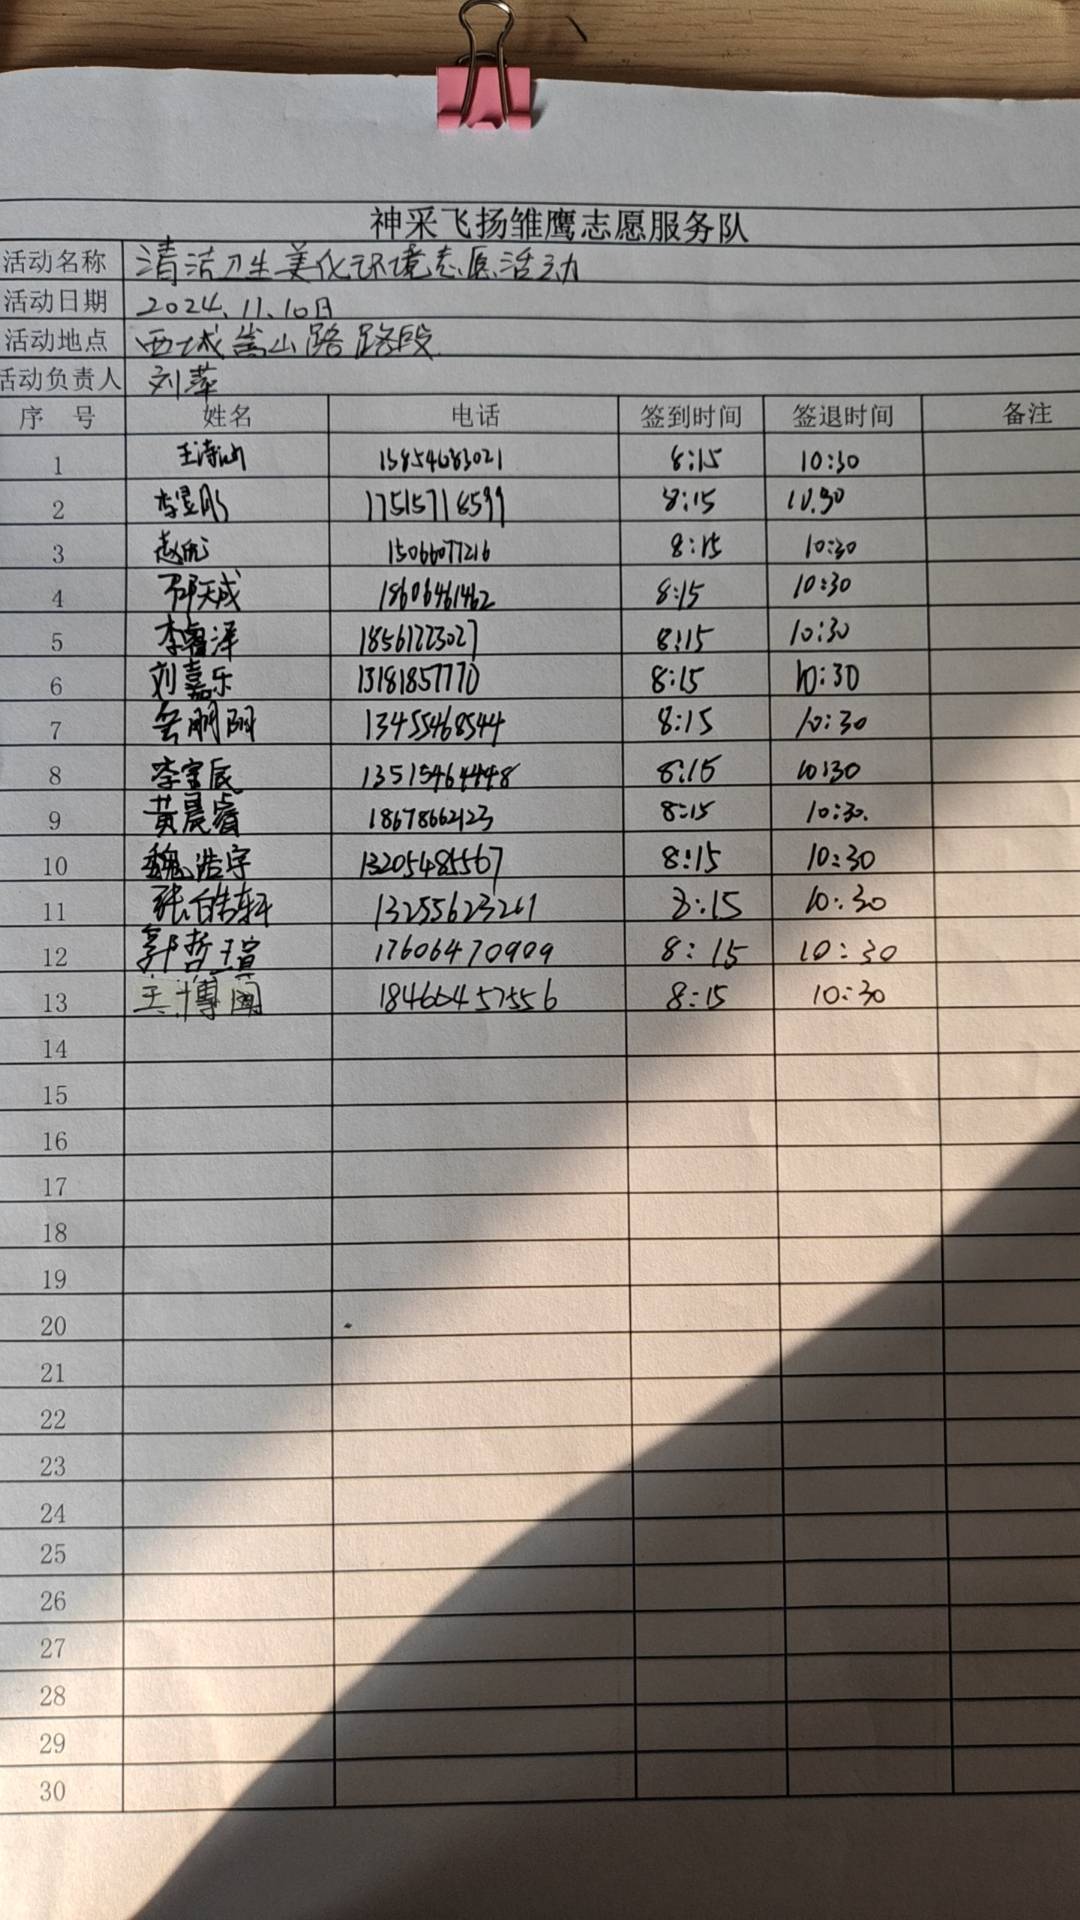 神采飞扬雏鹰志愿服务队
活动名称 清洁卫生美化环境志愿活动
活动日期 2024.11.10日
活动地点 西城嵩山路路段
活动负责人 刘萍
序号 姓名 电话 签到时间 签退时间 备注
1 王诗涵 13854683021 8:15 10:30
2 李昱彤 17515718599 8:15 10.30
3 赵 15066077216 8:15 10:30
4 邵天成 18606461462 8:15 10:30
5 李睿泽 18561223027 8:15 10:30
6 刘嘉乐 13181857770 8:15 10:30
7 13455468544 8:15 10:30
8 李宜辰 13515464448 8:15 10:30
9 黄晨睿 18678662123 8:15 10:30.
10 魏浩宇 13205485567 8:15 10:30
11 张皓轩 13255623261 8:15 10:30
12 郭哲瑄 17606470909 8:15 10:30
13 王博闻 18466457556 8:15 10:30
14
15
16
17
18
19
20
21
22
23
24
25
26
27
28
29
30